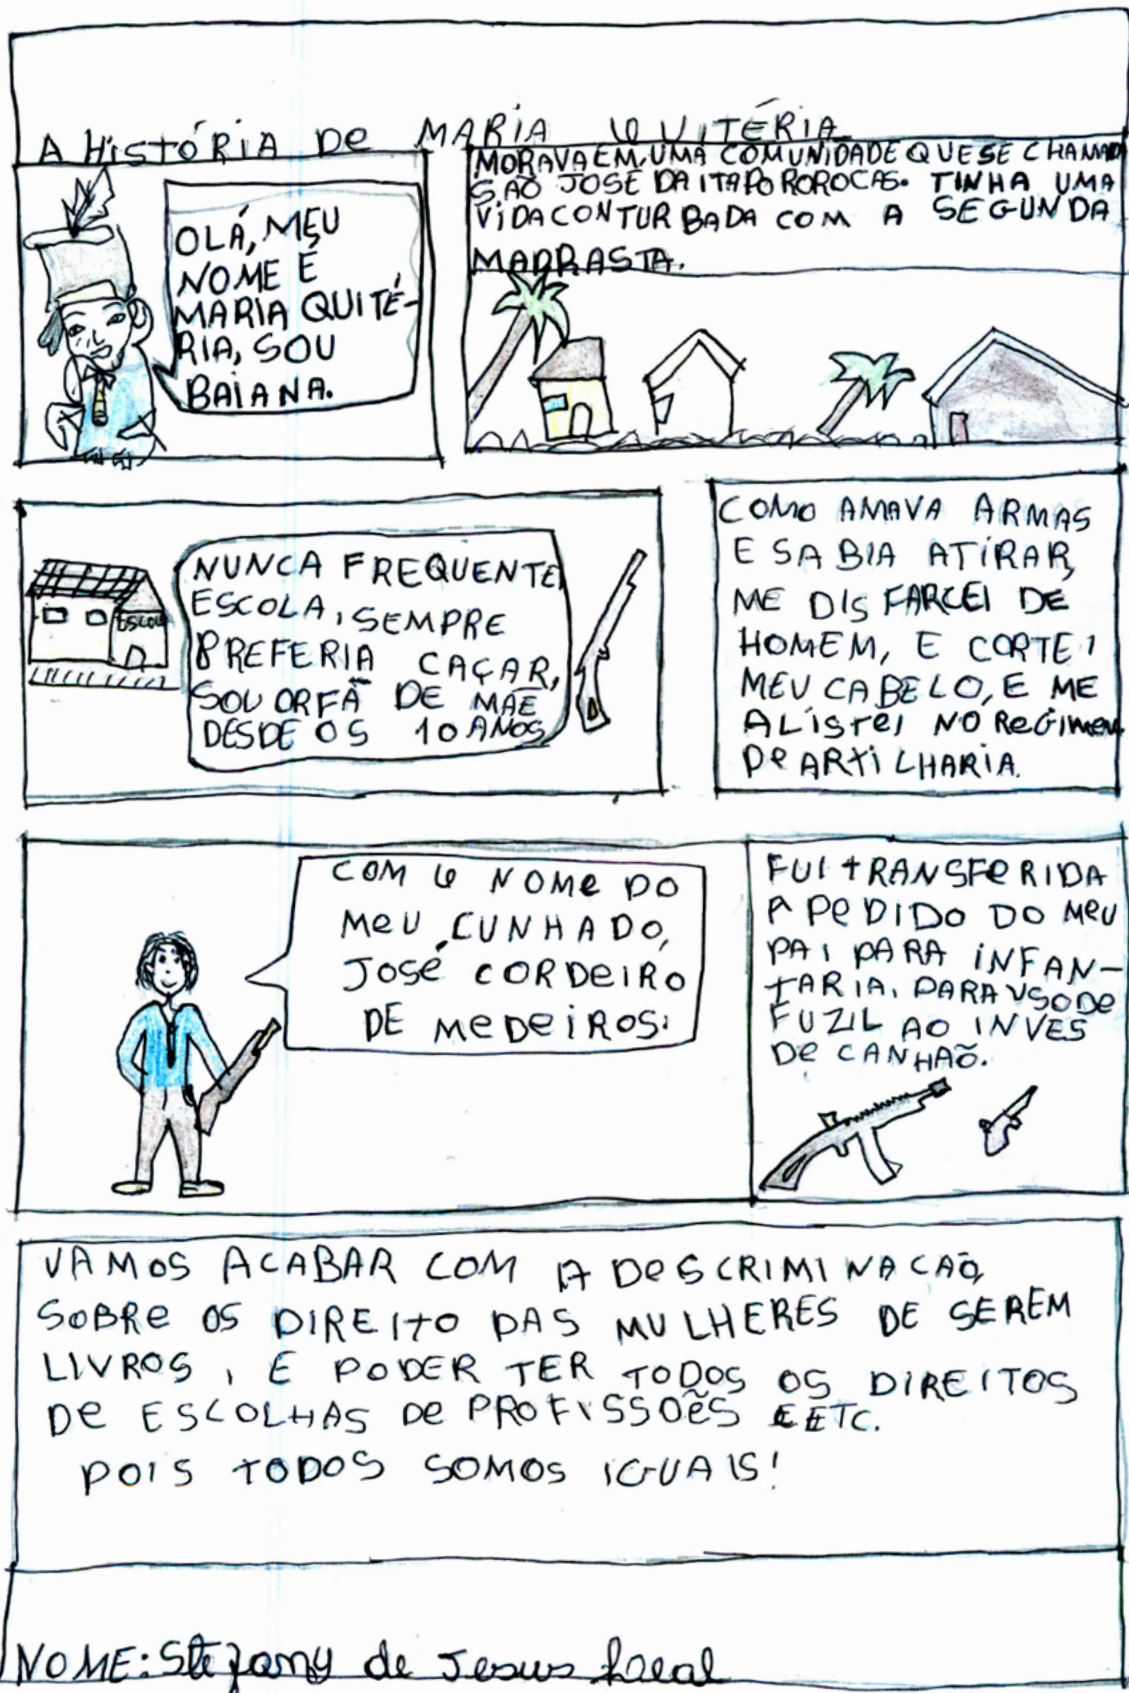 A HISTÓRIA DE MARIA QUITÉRIA
OLÁ, MEU
NOME É
MARIA QUITÉ-
RIA, SOU
BAIANA.
MORAVA EM UMA COMUNIDADE QUE SE CHAMADA
SÃO JOSÉ DA ITAPOROROCAS. TINHA UMA
VIDA CONTURBADA COM A SEGUNDA
MADRASTA.
ESCOLA
NUNCA FREQUENTEI
ESCOLA, SEMPRE
PREFERIA CAÇAR,
SOU ORFÃ DE MÃE
DESDE OS 10 ANOS
COMO AMAVA ARMAS
E SABIA ATIRAR,
ME DISFARCEI DE
HOMEM, E CORTEI
MEU CABELO, E ME
ALISTEI NO REGIMEN
DE ARTILHARIA.
COM O NOME DO
MEU CUNHADO,
JOSÉ CORDEIRO
DE MEDEIROS.
FUI TRANSFERIDA
A PEDIDO DO MEU
PAI PARA INFAN-
TARIA, PARA USO DE
FUZIL AO INVES
DE CANHAÕ.
VAMOS ACABAR COM A DESCRIMINACAÕ,
SOBRE OS DIREITO DAS MULHERES DE SEREM
LIVROS, E PODER TER TODOS OS DIREITOS
DE ESCOLHAS DE PROFISSOẼS E ETC.
POIS TODOS SOMOS IGUAIS!
NOME: Stefany de Jesus Leal